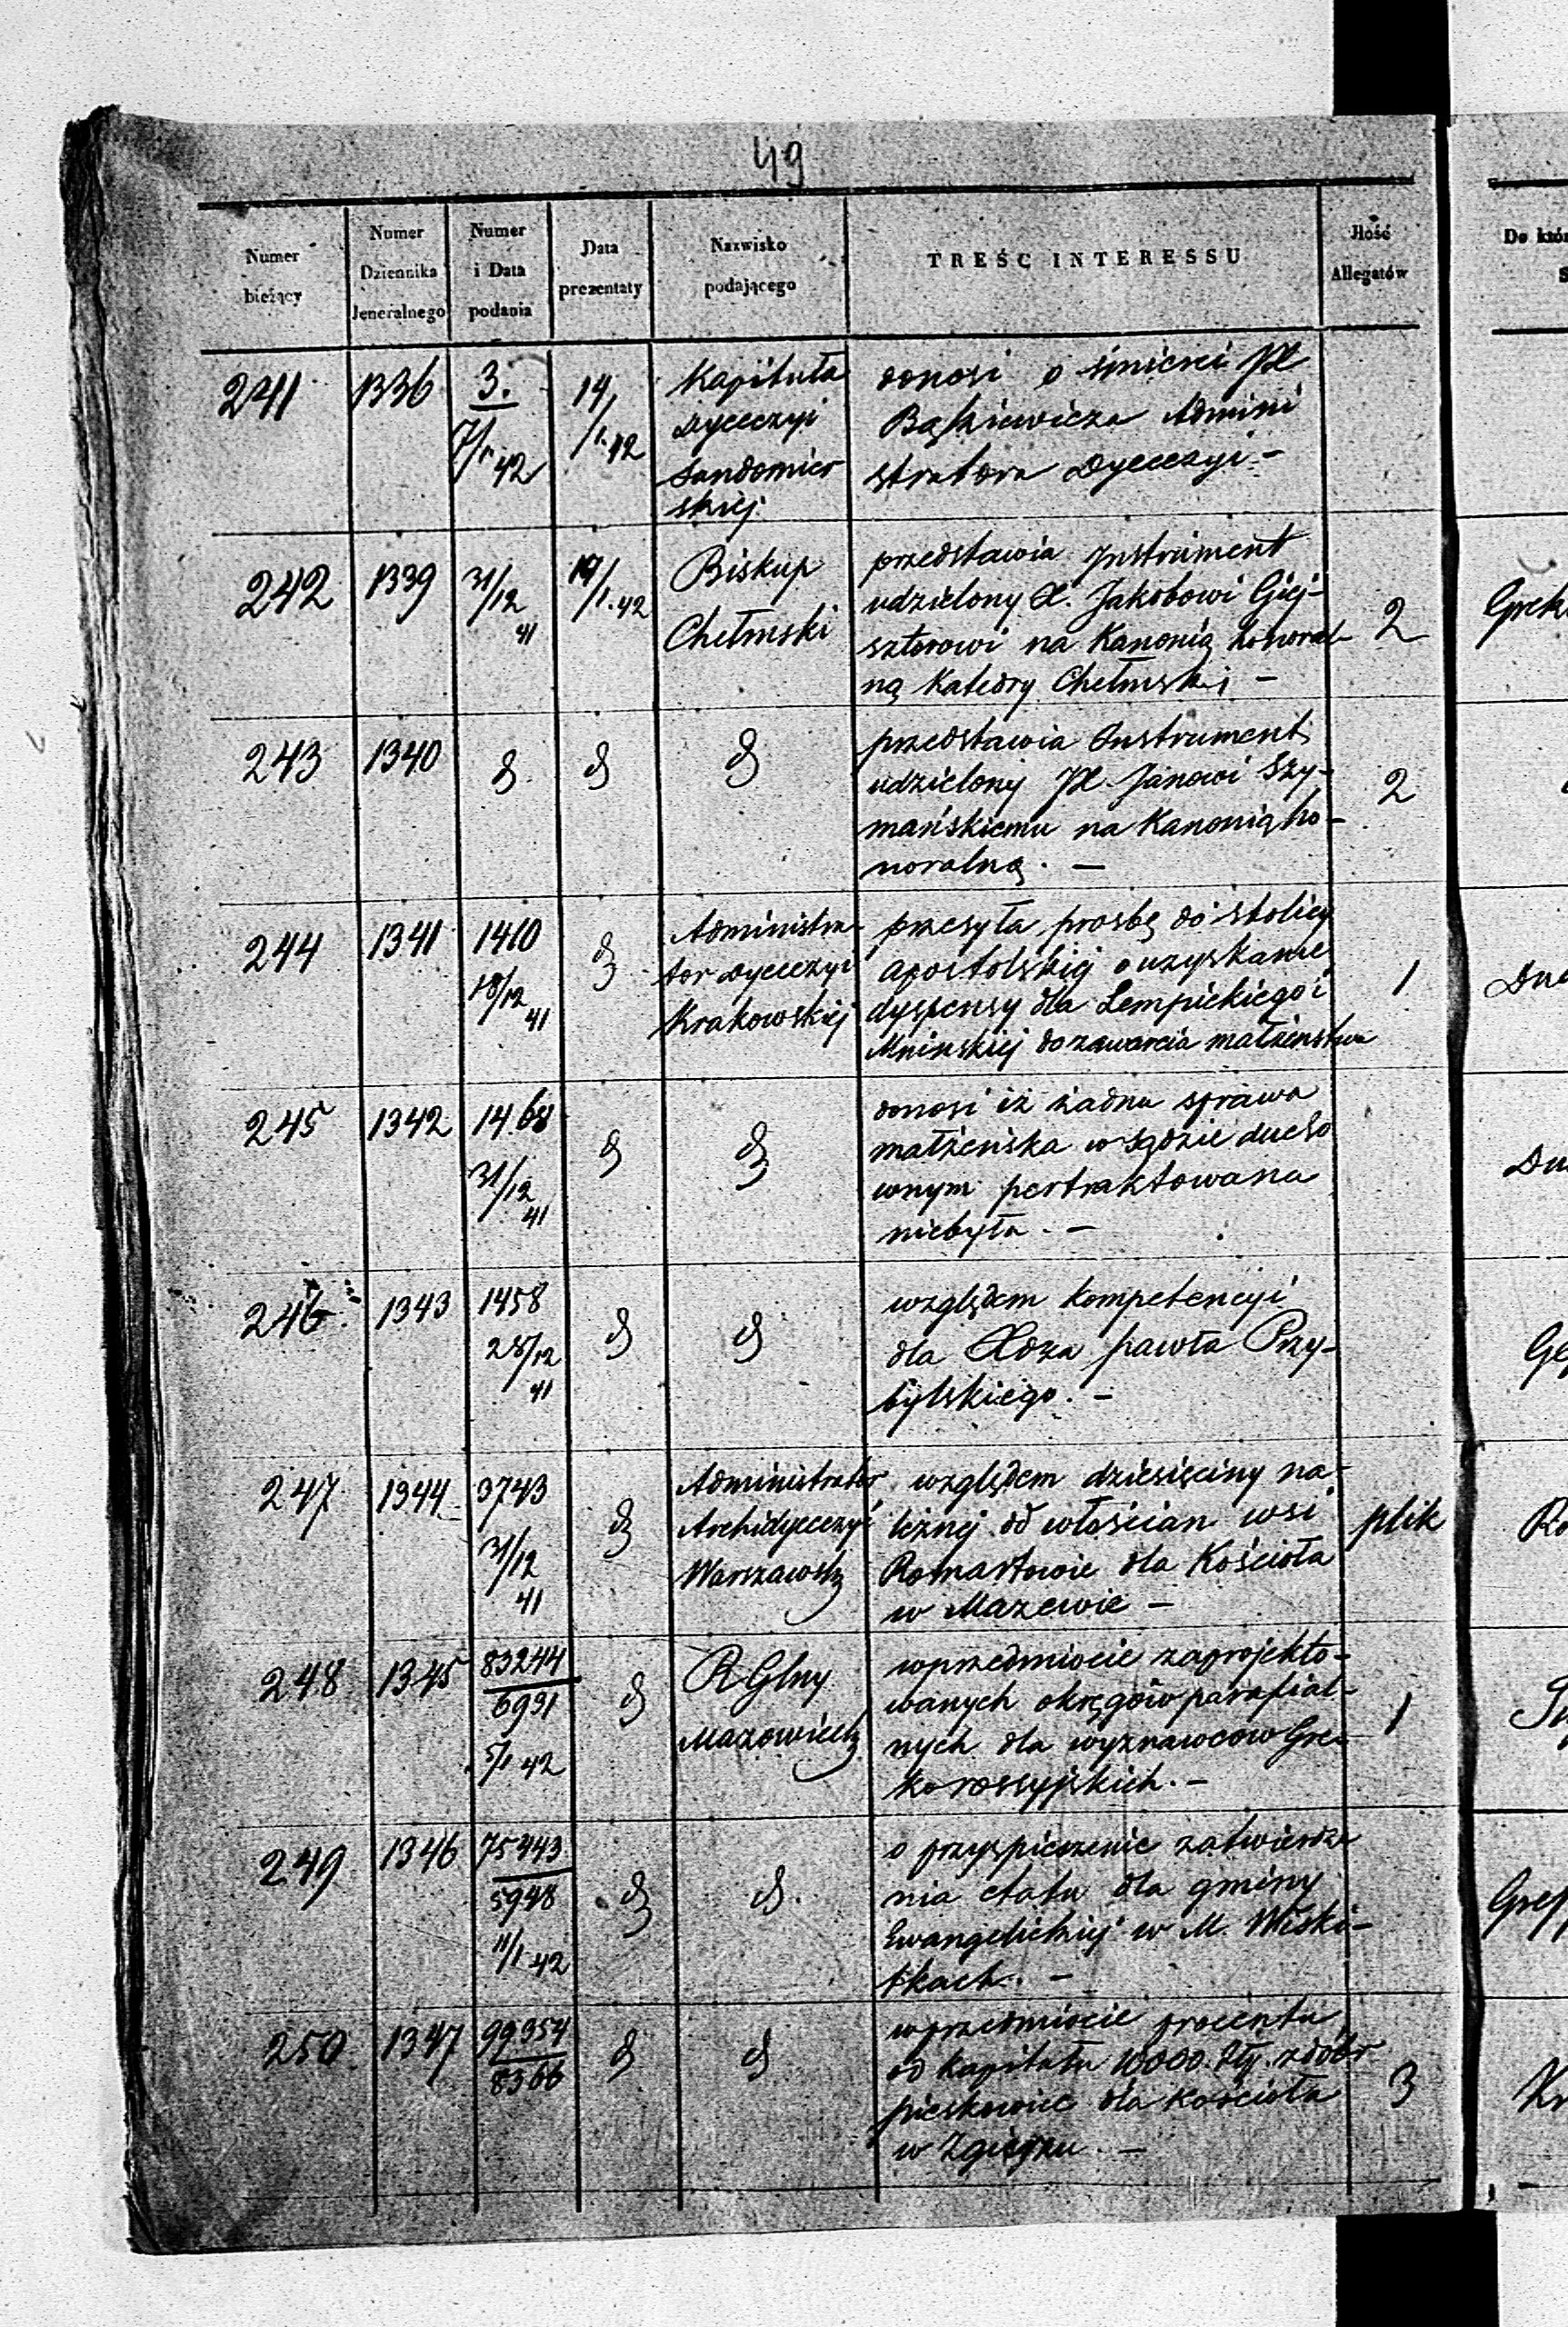 49
Numer bieżący
Numer Dziennika Jeneralnego
Numer i Data podania
Data prezentaty
Nazwisko podającego
TREŚĆ INTERESSU
Ilość Allegatów
241
1336
3.
7/1 42
14/1. 42
Kapituła
Dyecezyi
Sandomier
skiej
donosi o śmierci JX
Administratora Dyecezyi –
242
1339
31/12
41
14/1. 42
Biskup
Chełmski
przedstawia Instrument
udzielony X. Jakobowi Giej-
sztorowi na Kanonią honoral-
ną Katedry Chełmskiej –
2
243
1340
przedstawia Instrument
udzielony JX. Janowi Szy-
mańskiemu na Kanonią ho-
noralną. –
2
244
1341
1410
18/12
41
Administra-
tor Dyecezyi
Krakowskiej
przesyła prosbę do stolicy
apostolskiej o uzyskanie
dyspensy dla Lempickiego i
Mnińskiej do zawarcia małżeństwa
1
245
1342
1468
31/12
41
donosi iż żadna sprawa
małżeńska w sądzie ducho
wnym pertraktowana
niebyła. –
246
1343
1458
28/12
41
względem kompetencyi
dla Xdza pawła Przy-
bylskiego. –
247
1344
3743
31/12
41
Administrator
Archidyecezyi
Warszawsk
względem dziesięciny na-
leżnej od włościan wsi
Romartowie dla Kościoła
w Mazewie –
plik
248
1345
83244
6931
5/1 42
R Glny
Mazowieck
wprzedmiocie zaprojekto-
wanych okręgów parafial-
nych dla wyznawcow Gre-
korossyjskich. –
1
249
1346
75443
5948
11/1 42
o przyspieszenie zatwierdze
nia etatu dla gminy
Ewangelickiej w M. Wiski-
tkach. –
250
1347
99354
8366
wprzedmiocie procentu
od kapitału 10000. Złp. z dóbr
pieskowice dla Kościoła
w Zgierzu. –
3